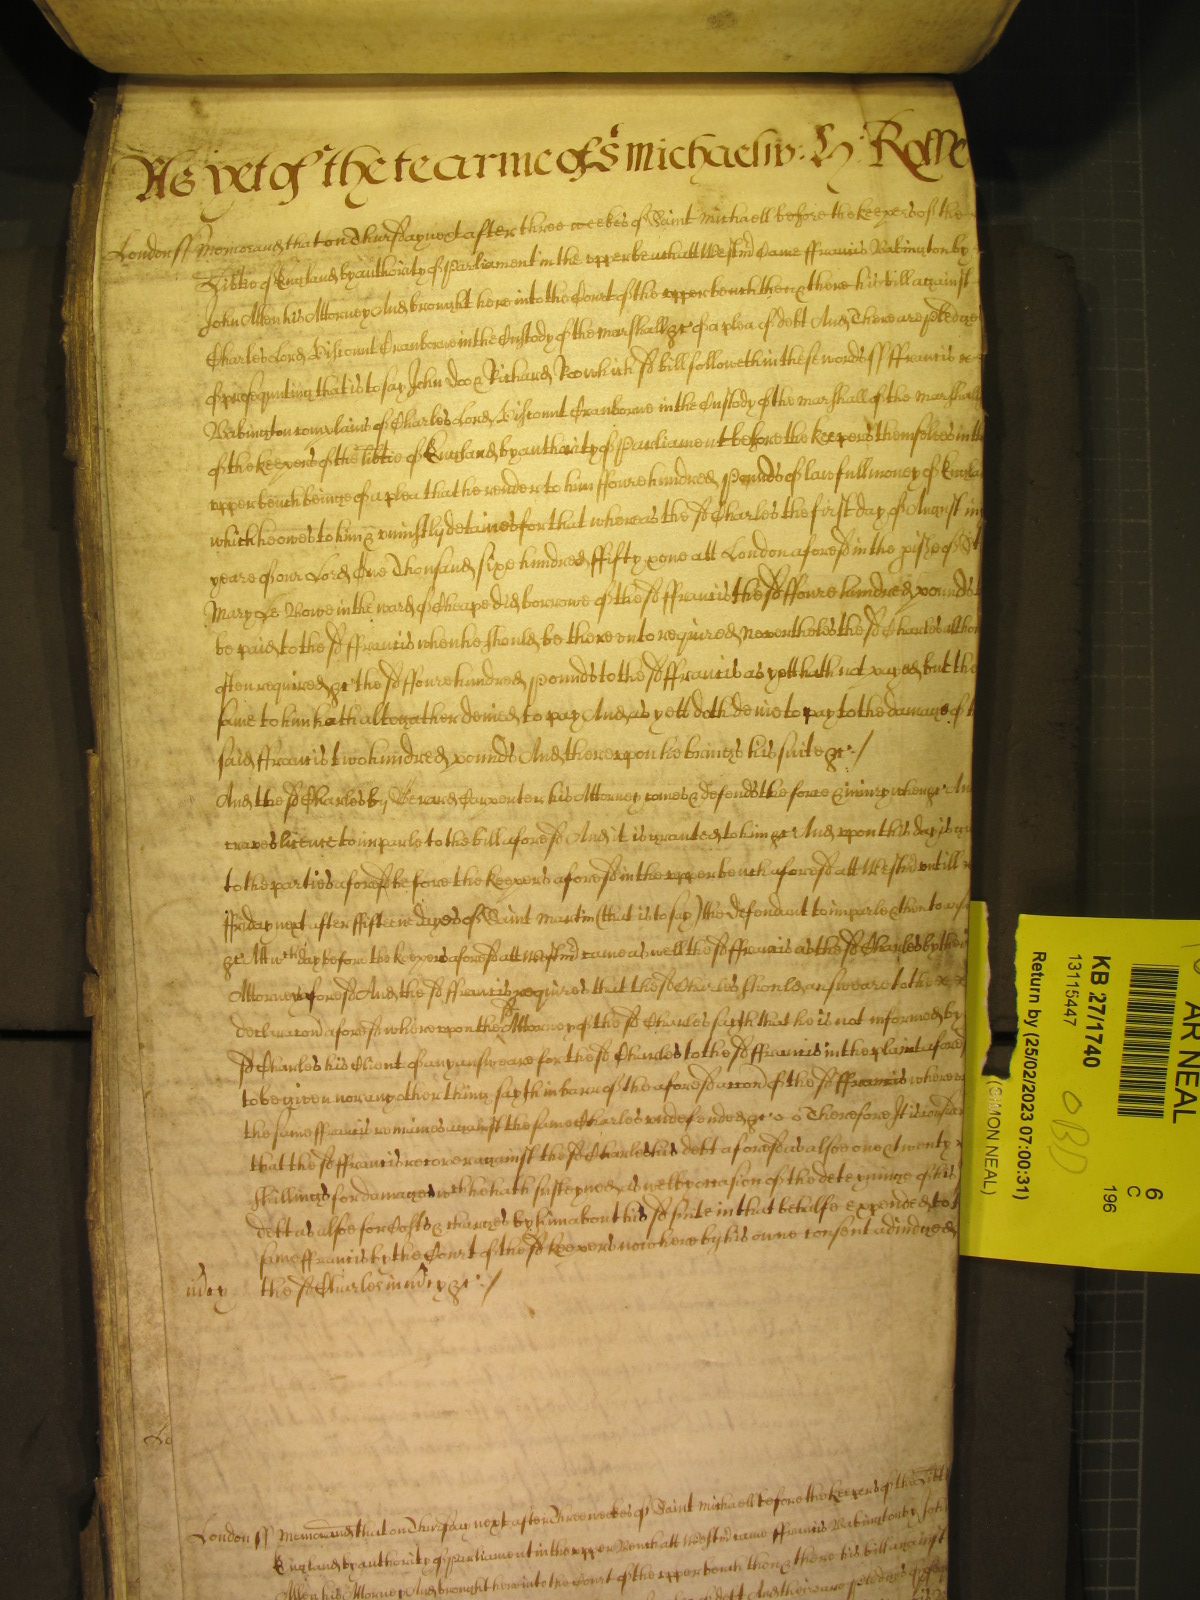 As yet of the tearme of St Michaell w: H: Rolle
London ss Memorand that on Thursday next after three weekes of Saint Michaell before the keepers of the
Libtie of England by authority of Parliament in the upper bench att Westmr Came ffrancis Babington by
John Allen his Attorney And brought here into the Court of the upper bench then & there his bill against
Charles Lord Viscount Cranborne in the Custody of the Marshall &c of a plea of debt And There are pledges
of prosequuting that is to say John Doo & Richard Roo which sd bill followeth in these words ss ffrancis
Babington complains of Charles Lord Viscount Cranborne in the Custody of the Marshall of the Marshall
of the keepers of the libtie of England by authority of Parliament before the keepers themselves in the
upper bench beinge of a plea that he render to him ffoure hundred pounds of lawfull money of Engla
which he owes to him & uniustly detaines for that whereas the sd Charles the first day of August in
yeare of our Lord One Thousand sixe hundred ffifty & one att London aforesd in the pishe of St
Mary Le Bowe in the ward of Cheape did borrowe of the sd ffrancis the sd ffoure hundred pounds t
be paid to the sd ffrancis when he should be thereunto required Nevertheles the sd Charles altho
often required &c the sd ffoure hundred pounds to the sd ffrancis as yett hath not payed but the
same to him hath altogather denied to pay And as yett doth denie to pay to the damage of t
said ffrancis two hundred pounds And thereupon he brings his suite &c./
And the sd Charles by Gerard Carpenter his Attorney comes & defends the force & iniury when &c An
craves licence to imparle to the bill aforesd And it is granted to him &c And upon this day is
to the parties aforesd before the keepers aforesd in the upper bench aforesd att Westmr untill
ffriday next after ffifteene dayes of Saint Martin (that is to say) the defendant to imparle & then to
&c Att wch day before the keepers aforesd att Westmr came as well the sd ffrancis as the sd Charles by their
Attorneys aforesd And the sd ffrancis requires that the sd Charles should answeare to the
declaracon aforesd whereupon the sd Attorney of the sd Charles sayth that he is not informed by
sd Charles his Client of any answeare for the sd Charles to the sd ffrancis in the plaint aforesd
to be given nor any other thing sayth in barr of the aforesd accon of the sd ffrancis whereu
the same ffrancis remaines against the same Charles undefended &c Therefore It is consider
that the sd ffrancis recover against the sd Charles his debt aforesd as alsoe one & twenty
shillings for damages wch he hath susteyned as well by occasion of the deteyninge of his
debt as alsoe for Costs & charges by him about his sd suite in that behalfe expended to t
same ffrancis by the Court of the sd keepers now here by his owne consent adiudged
the sd Charles in mercy &c./
London ss Memorand that on Thursday next after three weekes of Saint Michaell before the keepers of the Libt
England by authority of Parliament in the upper Bench att Westmr came ffrancis Babington by John
Allen his Attorney And brought here into the Court of the upper bench then & there his bill against
AR NEAL
6
C
196
KB 27/1740
13115447
OBD
Return by (25/02/2023 07:00:31)
(SIMON NEAL)